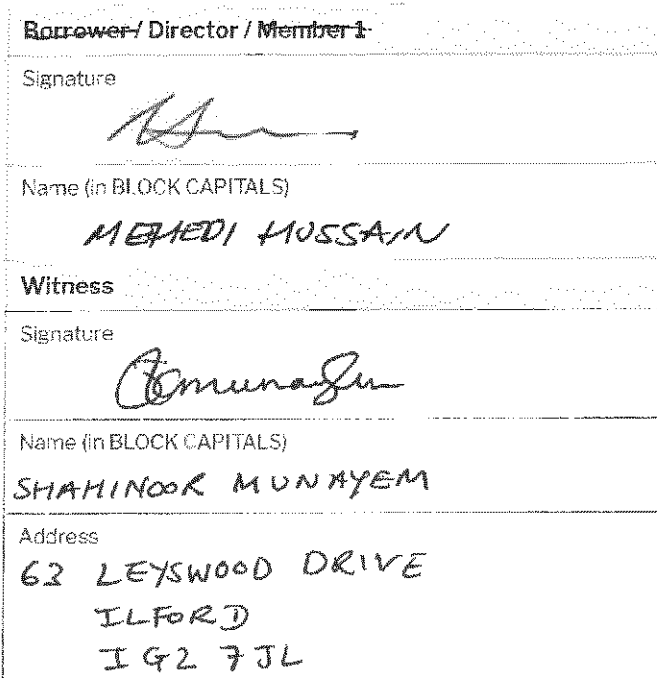 Borrower / Director / Member 1
Signature
Name (in BLOCK CAPITALS)
MEHEDI HUSSAIN
Witness
Signature
Name (in BLOCK CAPITALS)
SHAHINOOR MUNAYEM
Address
63 LEYSWOOD DRIVE
ILFORD
IG2 7JL